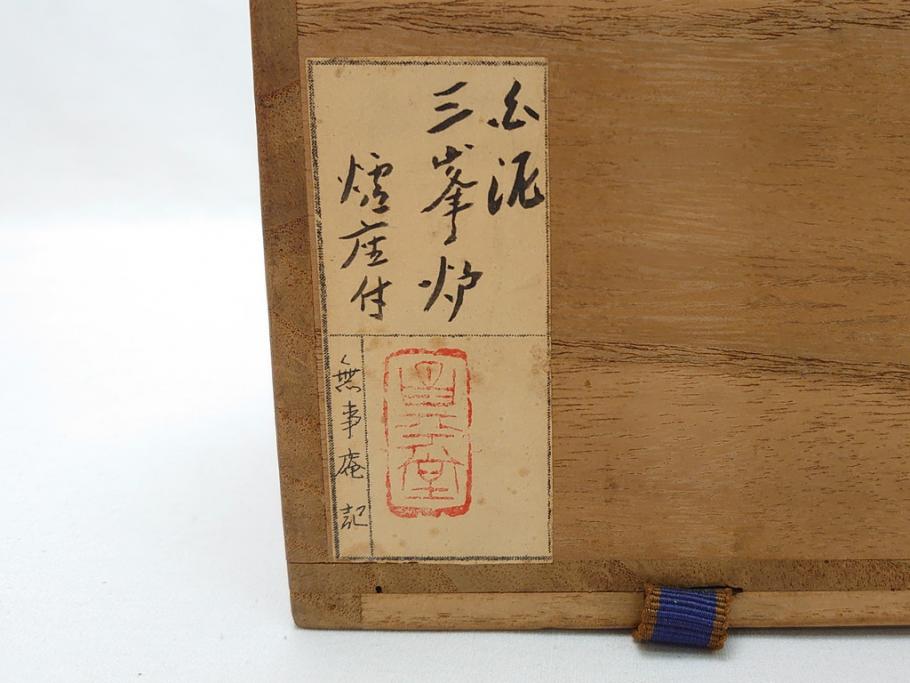 白泥
三峯炉
爐座付
無事庵記